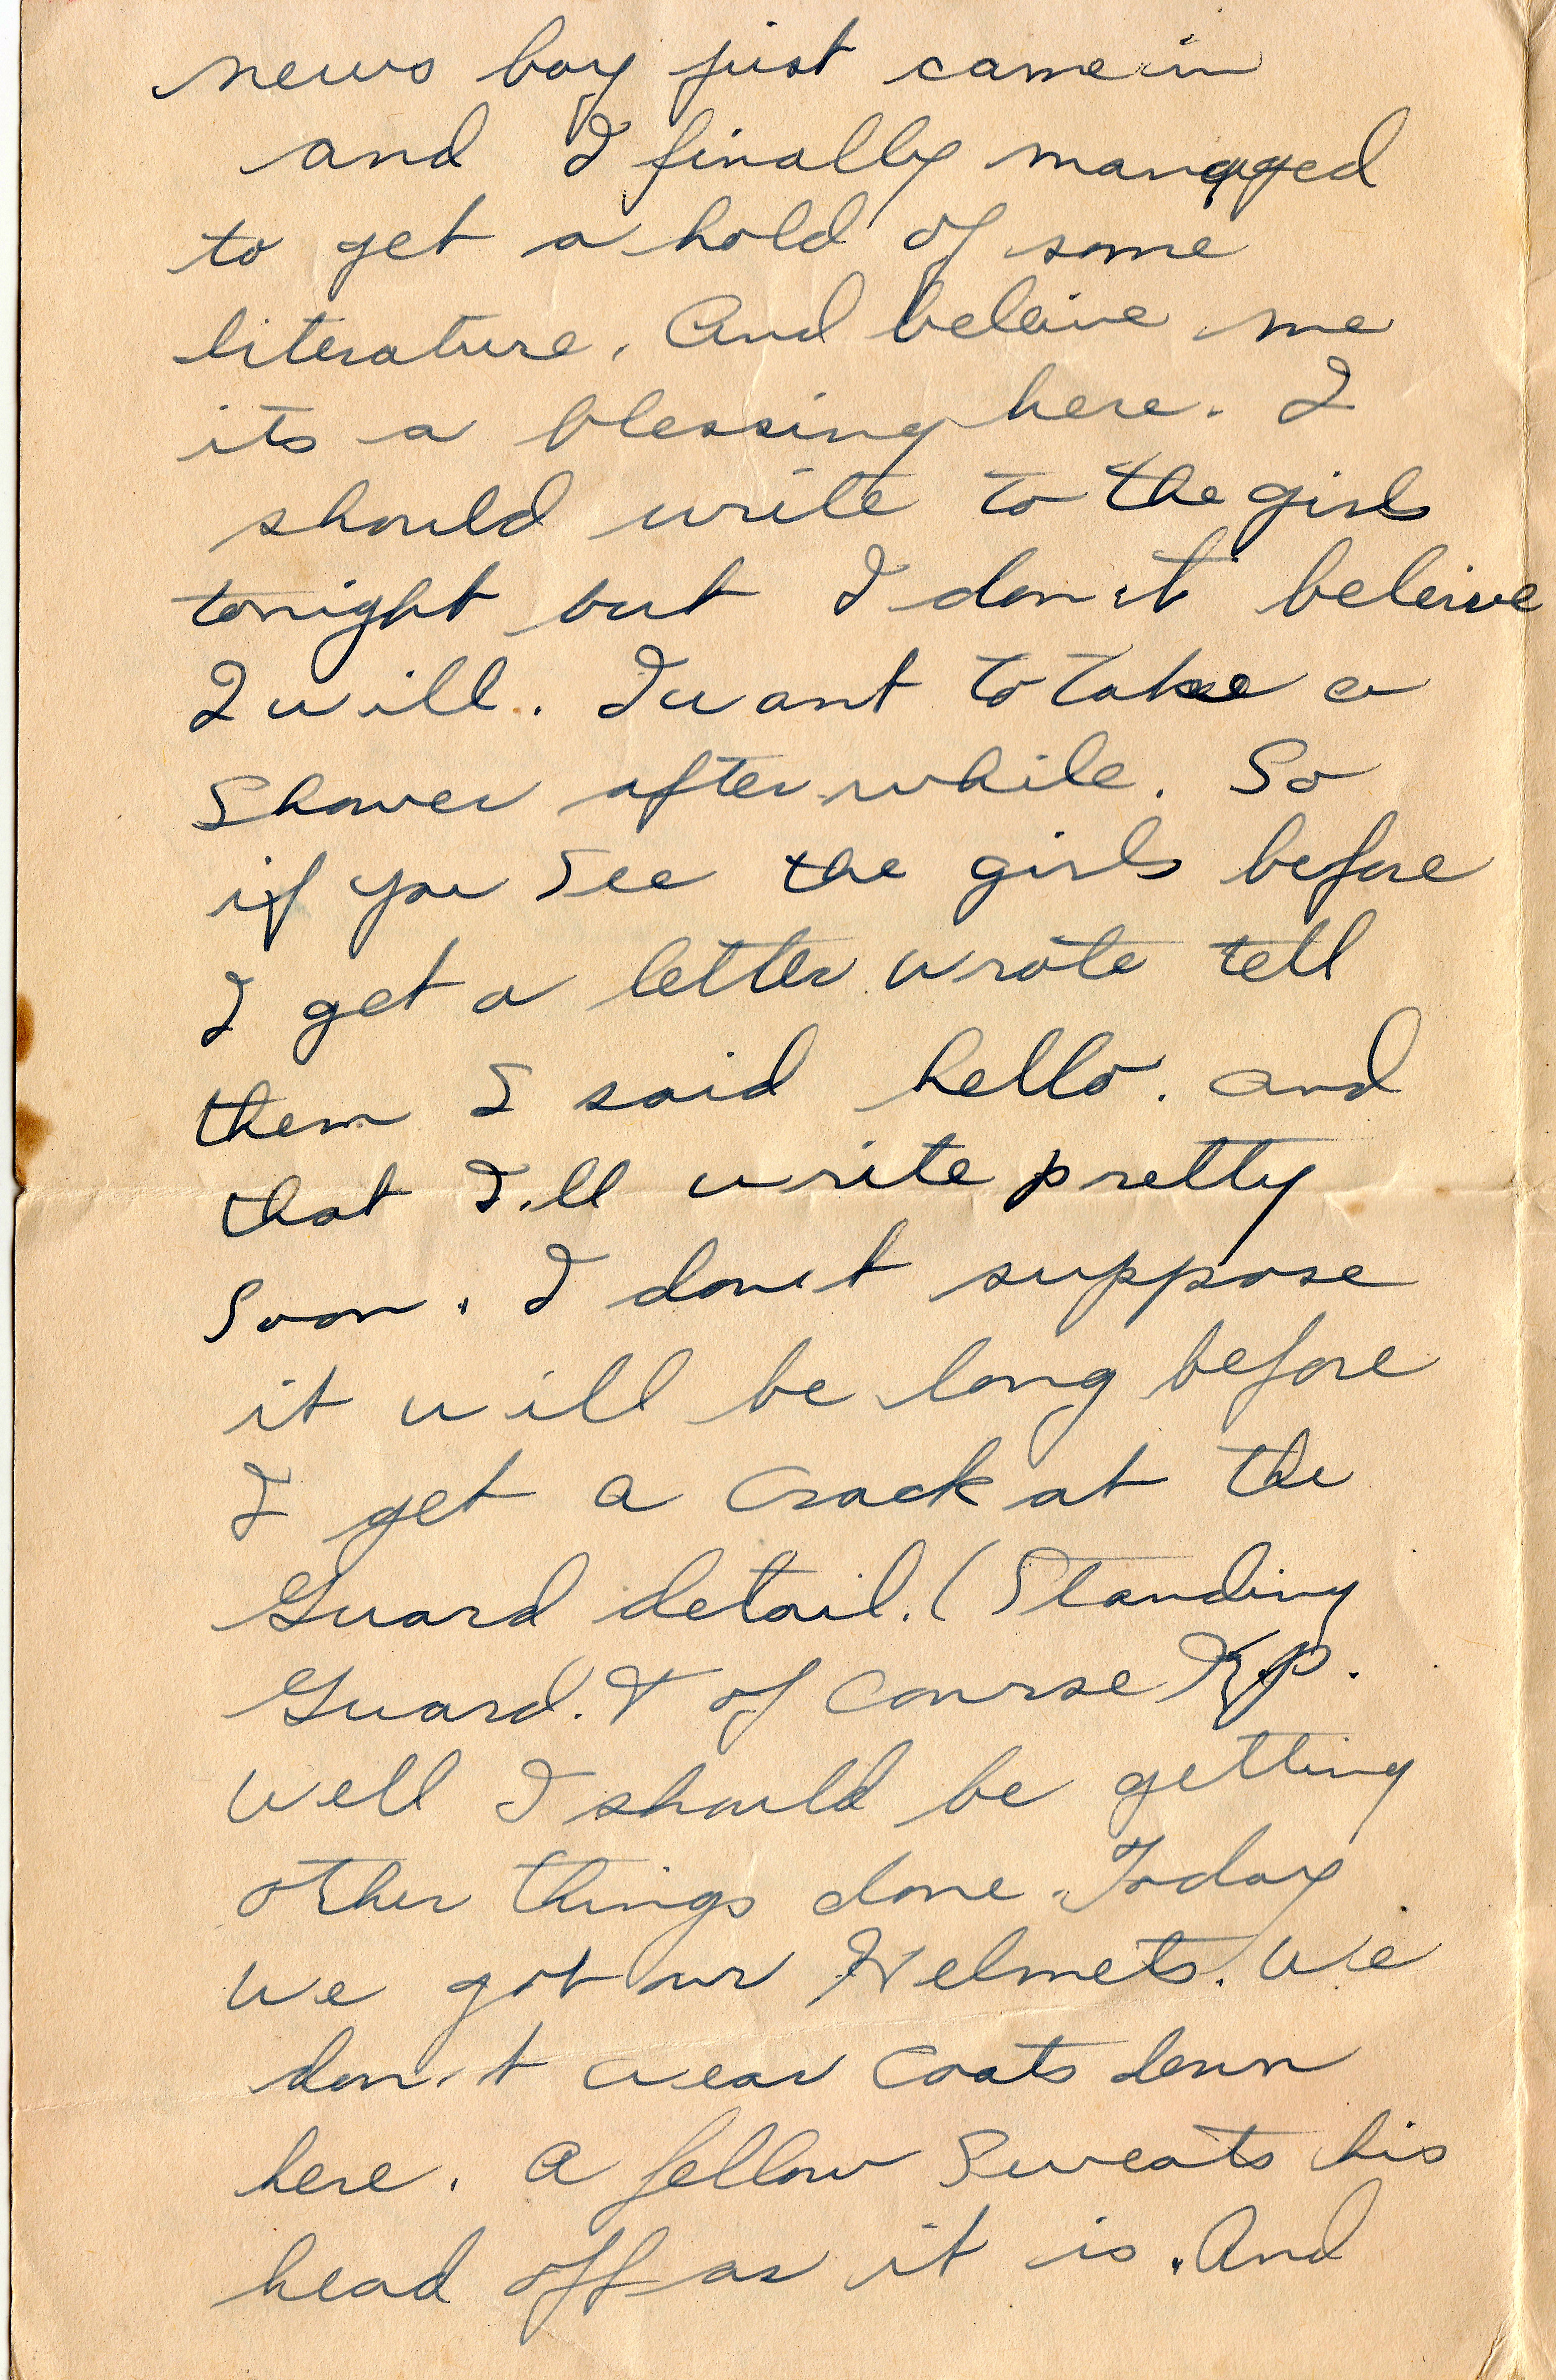 news boy just came in
and I finally managed
to get a hold of some
literature. And beleive me
its a blessing here. I
should write to the girls
tonight but I don't beleive
I will. I want to take a
Shower after while. So
if you see the girls before
I get a letter wrote tell
them I said hello. and
that I'll write pretty
soon. I don't suppose
it will be long before
I get a crack at the
Guard detail. (Standing
Guard. & of course K.P.
Well I should be getting
other things done. Today
we got our Helmets. We
don't wear coats down
here. A fellow sweats his
head off as it is. And